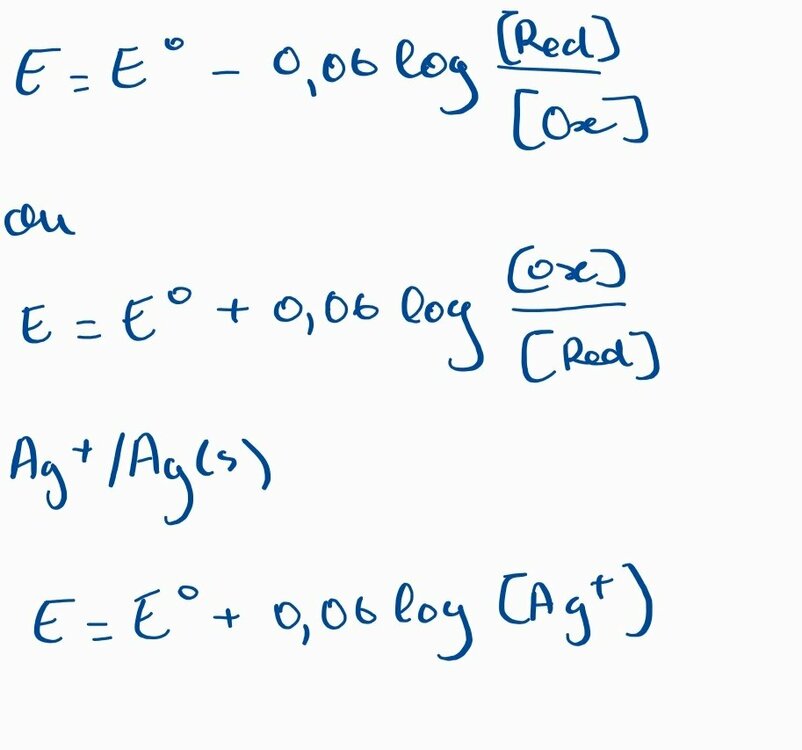 E = E° - 0,06 log [Red] / [Ox]
ou
E = E° + 0,06 log [Ox] / [Red]
Ag⁺/Ag(s)
E = E° + 0,06 log [Ag⁺]